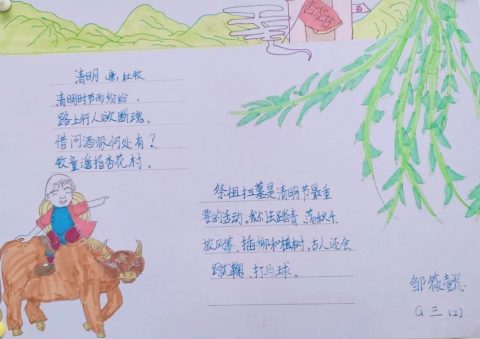 清明 唐 杜牧
清明时节雨纷纷，
路上行人欲断魂。
借问酒家何处有？
牧童遥指杏花村。
祭祖扫墓是清明节最重
要的活动，还踏青、荡秋千
放风筝、插柳和植树，古人还会
蹴鞠、打马球。
邹
G 三 (2)